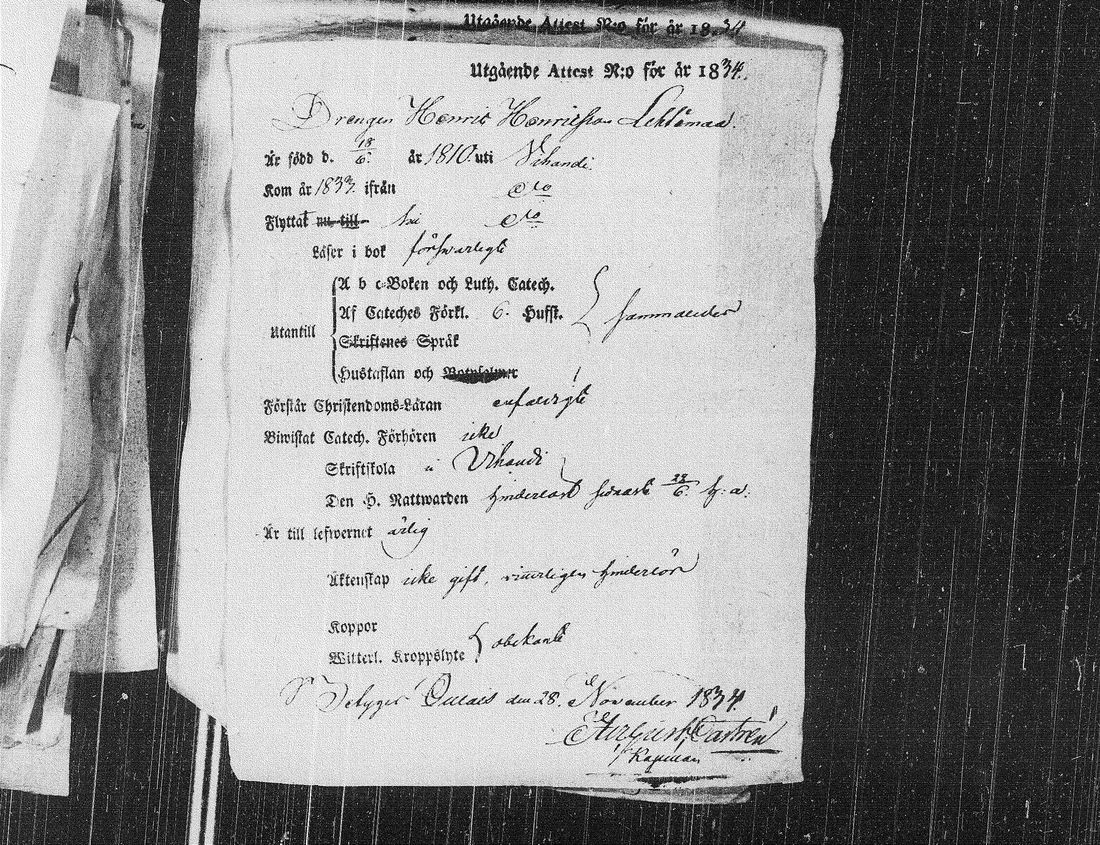 Utgående Attest N:o för år 1834
Utgående Attest N:o för år 1834.
Drengen Henric Henricsson Lehtomaa.
Är född d. 18/6. år 1810. uti Uhandi.
Kom år 183 ifrån Dto
Flyttat nu till Dto
Läser i bok försvarligt
A b c-Boken och Luth. Catech.
Utantill Af Cateches Förkl. 6. Hufst. sammaledes
Skriftenes Språk
Hustaflan och Botpsalmer
Förstår Christendoms-Läran enfaldigt
Biwistat Catech. Förhören icke
Skriftskola i Uhandi
Den H. Nattwarden hinderlöst sednast 28/6. h: a:
Är till lefwernet ärlig
Äktenskap icke gift, hinderlös
Koppor
Witterl. Kroppslyte obekant
den 28. November 1834.
August Castrén
Kapellan